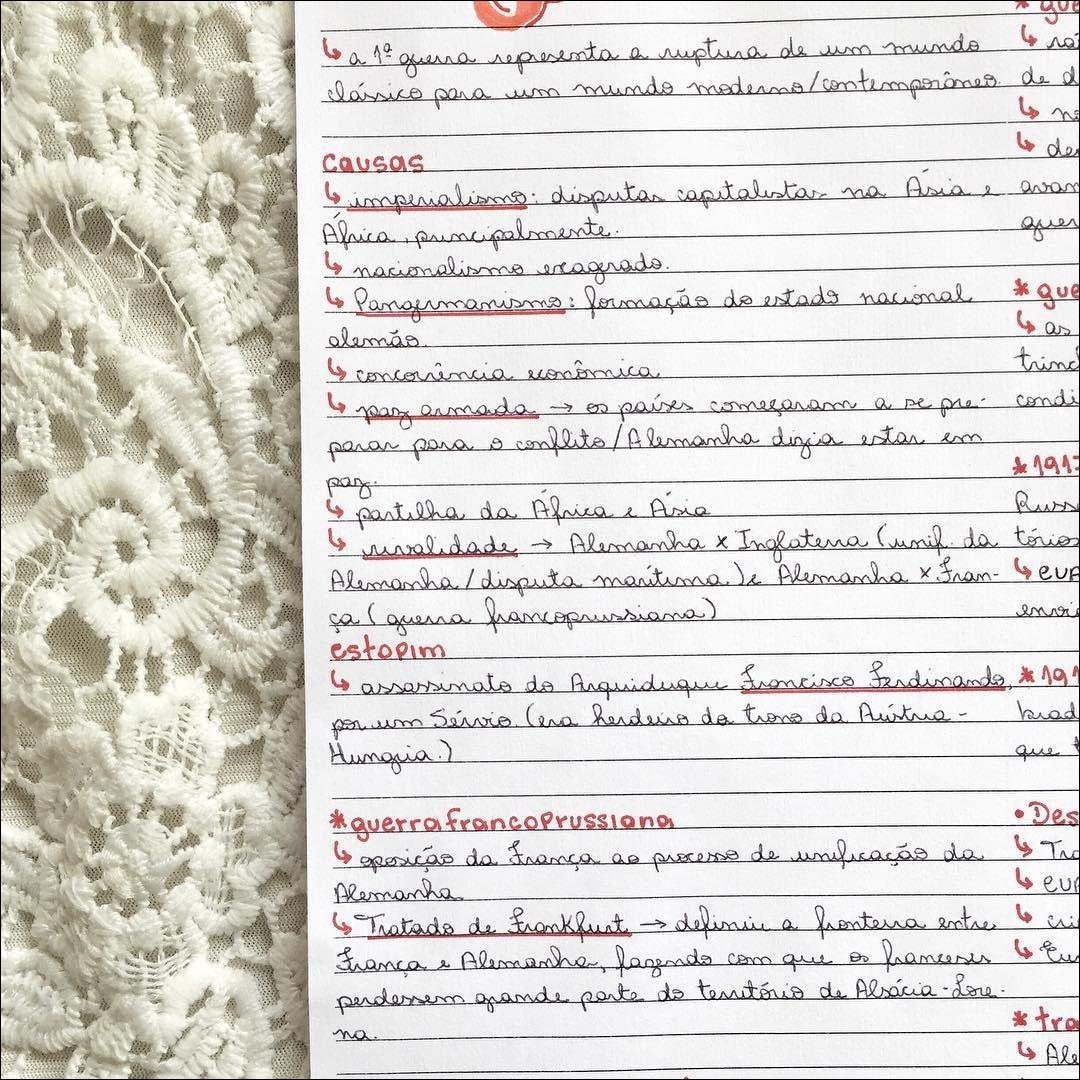 ↳ a 1ª guerra representa a ruptura de um mundo
clássico para um mundo moderno/contemporâneo.
causas
↳ imperialismo: disputas capitalistas na Ásia e
África, principalmente.
↳ nacionalismo exagerado.
↳ Pangermanismo: formação do estado nacional
alemão.
↳ concorrência econômica
↳ paz armada → os países começaram a se pre-
parar para o conflito/Alemanha dizia estar em
paz.
↳ partilha da África e Ásia
↳ rivalidade → Alemanha x Inglaterra (unif. da
Alemanha/disputa marítima) e Alemanha x Fran-
ça (guerra francoprussiana)
estopim
↳ assassinato do Arquiduque Francisco Ferdinando,
por um Sérvio (era herdeiro do trono da Áustria-
Hungria.)
*guerra francoprussiana
↳ oposição da França ao processo de unificação da
Alemanha
↳ Tratado de Frankfurt → definiu a fronteira entre
França e Alemanha, fazendo com que os franceses
perdessem grande parte do território de Alsácia-Lore-
na.
* gue
de d
↳ de
avan
guer
* gue
↳ as
trinc
condi
*191
Russ
tórios
↳ eua
envi
*191
que
• Des
↳ Tra
↳ eua
↳ cri
* tra
↳ Ale